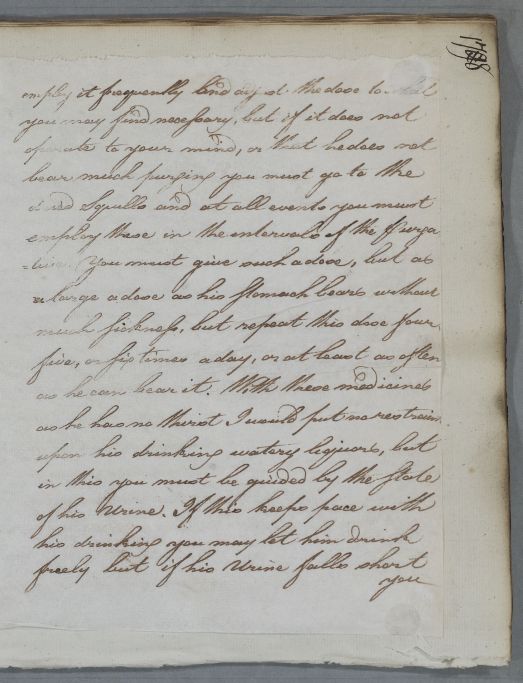 employ it frequently and adjust the dose to what
you may find necessary, but if it does not
operate to your mind, or that he does not
bear much purging you must go to the
dried Squills and at all events you must
employ these in the intervals of the Purga
=tive. You must give such a dose, but as
a large a dose as his Stomach bears without
much Sickness, but repeat this dose four,
five, or six times a day, or at least as often
as he can bear it. With these medicines
as he has no thirst I would put no restraint
upon his drinking watery liquors, but
in this you must be guided by the State
of his Urine. If this keeps pace with
his drinking you may let him drink
freely but if his Urine falls short
you